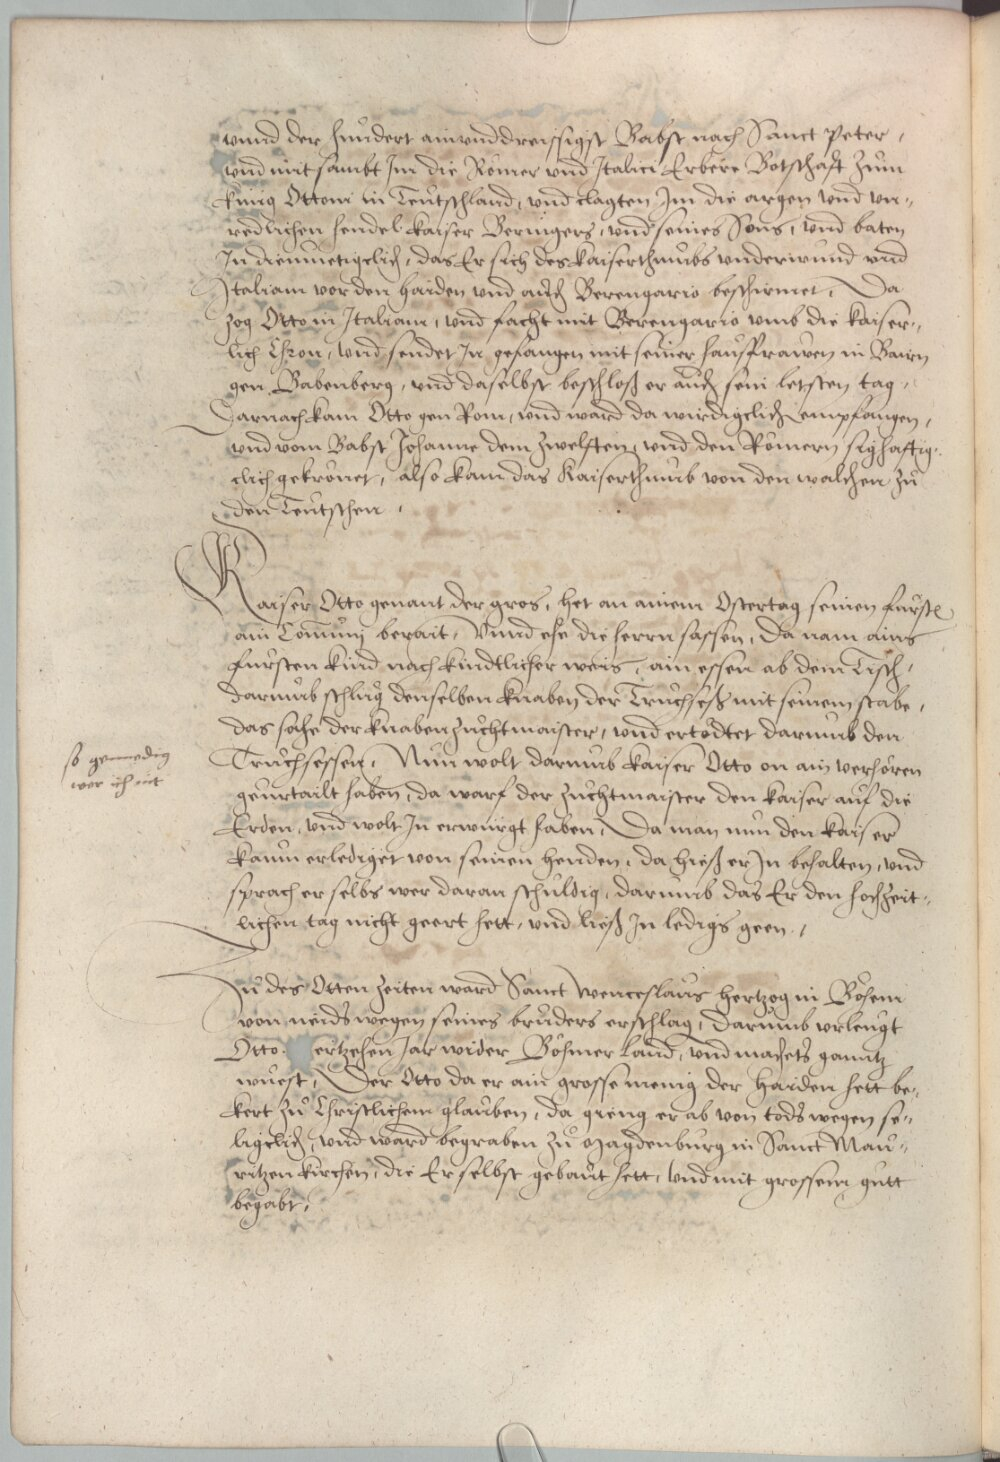 vnnd der hundert ainvnddreissigst Babst nach Sanct Peter,
vnd mit sambt Im die Römer vnd Italici Erbere Botschafft zum
künig Ottoni in Teutschland, vnd clagten Im die argen vnd vn-
redlichen hendel Kaiser Beringers, vnd seines Sons, vnd baten
In diemuetigclich, das Er sich des kaiserthumbs vnderwund vnd
Italiam vor den haiden vnd auch Berengario beschirmet. Da
zog Otto in Italiam, vnd facht mit Berengario vmb die kaiser-
lich Chron, vnd sendet In gefangen mit seiner hausfrawen in Bairn
gen Babenberg, vnd daselbst beschloß er auch sein letsten tag.
Darnach kam Otto gen Rom, vnd ward da wirdigclich empfangen,
vnd vom Babst Johanne dem zwelften, vnd den Römern sighafftig-
clich gekrönet, also kam das Kaiserthumb von den walchen zu
den Teutschen.
Kaiser Otto genant der gros, het an ainem Ostertag seinen fürsten
ain Conuiuj berait, Vnnd ehe die herrn sassen, Da nam ains
fürsten kind nach kindtlicher weis, ain essen ab dem Tisch,
darumb schlug denselben knaben der Truchseß mit seinem stabe,
das sahe der knaben zuchtmaister, vnd ertödtet darumb den
Truchsessen. Nun wolt darumb kaiser Otto on ain verhören
geurtailt haben, da warf der zuchtmaister den kaiser auf die
Erden, vnd wolt In erwürgt haben, Da man nun den kaiser
kaum erlediget von seinen henden, da hieß er In behalten, vnd
sprach er selbs wer daran schuldig, darumb das Er den hochzeit-
lichen tag nicht geert hett, vnd ließ In ledigs geen.
so
wer ich nit
Zu des Otten zeiten ward Sanct Wenceslaus hertzog in Böhem
von neids wegen seines bruders erschlag, darumb vrleugt
Otto ertzehen Jar wider Böhmer land, vnd machets ganntz
wuest, Der Otto da er ain grosse menig der haiden hett be-
kert zu Christlichem glauben, da gieng er ab von tods wegen se-
ligclich, vnd ward begraben zu Magdenburg in Sanct Mau-
ritzen kirchen, die Er selbst gebaut hett, vnd mit grossem gutt
begabt.